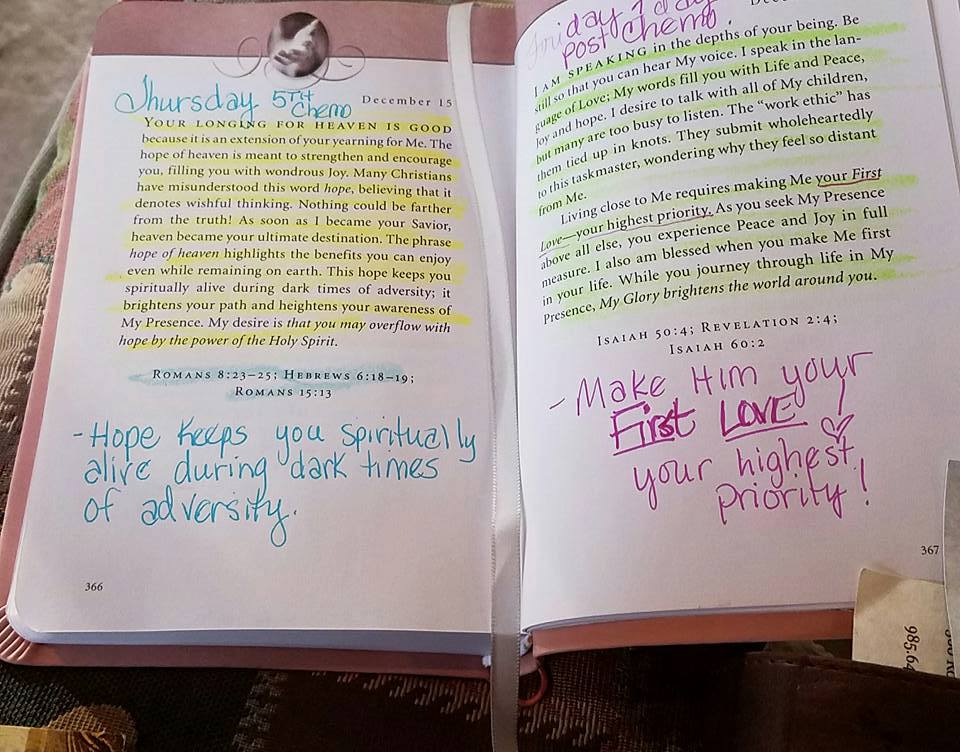 Thursday 5TH
Chemo
December 15
YOUR LONGING FOR HEAVEN IS GOOD
because it is an extension of your yearning for Me. The
hope of heaven is meant to strengthen and encourage
you, filling you with wondrous Joy. Many Christians
have misunderstood this word hope, believing that it
denotes wishful thinking. Nothing could be farther
from the truth! As soon as I became your Savior,
heaven became your ultimate destination. The phrase
hope of heaven highlights the benefits you can enjoy
even while remaining on earth. This hope keeps you
spiritually alive during dark times of adversity; it
brightens your path and heightens your awareness of
My Presence. My desire is that you may overflow with
hope by the power of the Holy Spirit.
ROMANS 8:23–25; HEBREWS 6:18–19;
ROMANS 15:13
- Hope keeps you spiritually
alive during dark times
of adversity.
366
Friday 1 day
post chemo.
I AM SPEAKING in the depths of your being. Be
still so that you can hear My voice. I speak in the lan-
guage of Love; My words fill you with Life and Peace,
Joy and hope. I desire to talk with all of My children,
but many are too busy to listen. The “work ethic” has
them tied up in knots. They submit wholeheartedly
to this taskmaster, wondering why they feel so distant
from Me.
Living close to Me requires making Me your First
Love—your highest priority. As you seek My Presence
above all else, you experience Peace and Joy in full
measure. I also am blessed when you make Me first
in your life. While you journey through life in My
Presence, My Glory brightens the world around you.
ISAIAH 50:4; REVELATION 2:4;
ISAIAH 60:2
- Make Him your
First LOVE
your highest
priority!
367
985.64